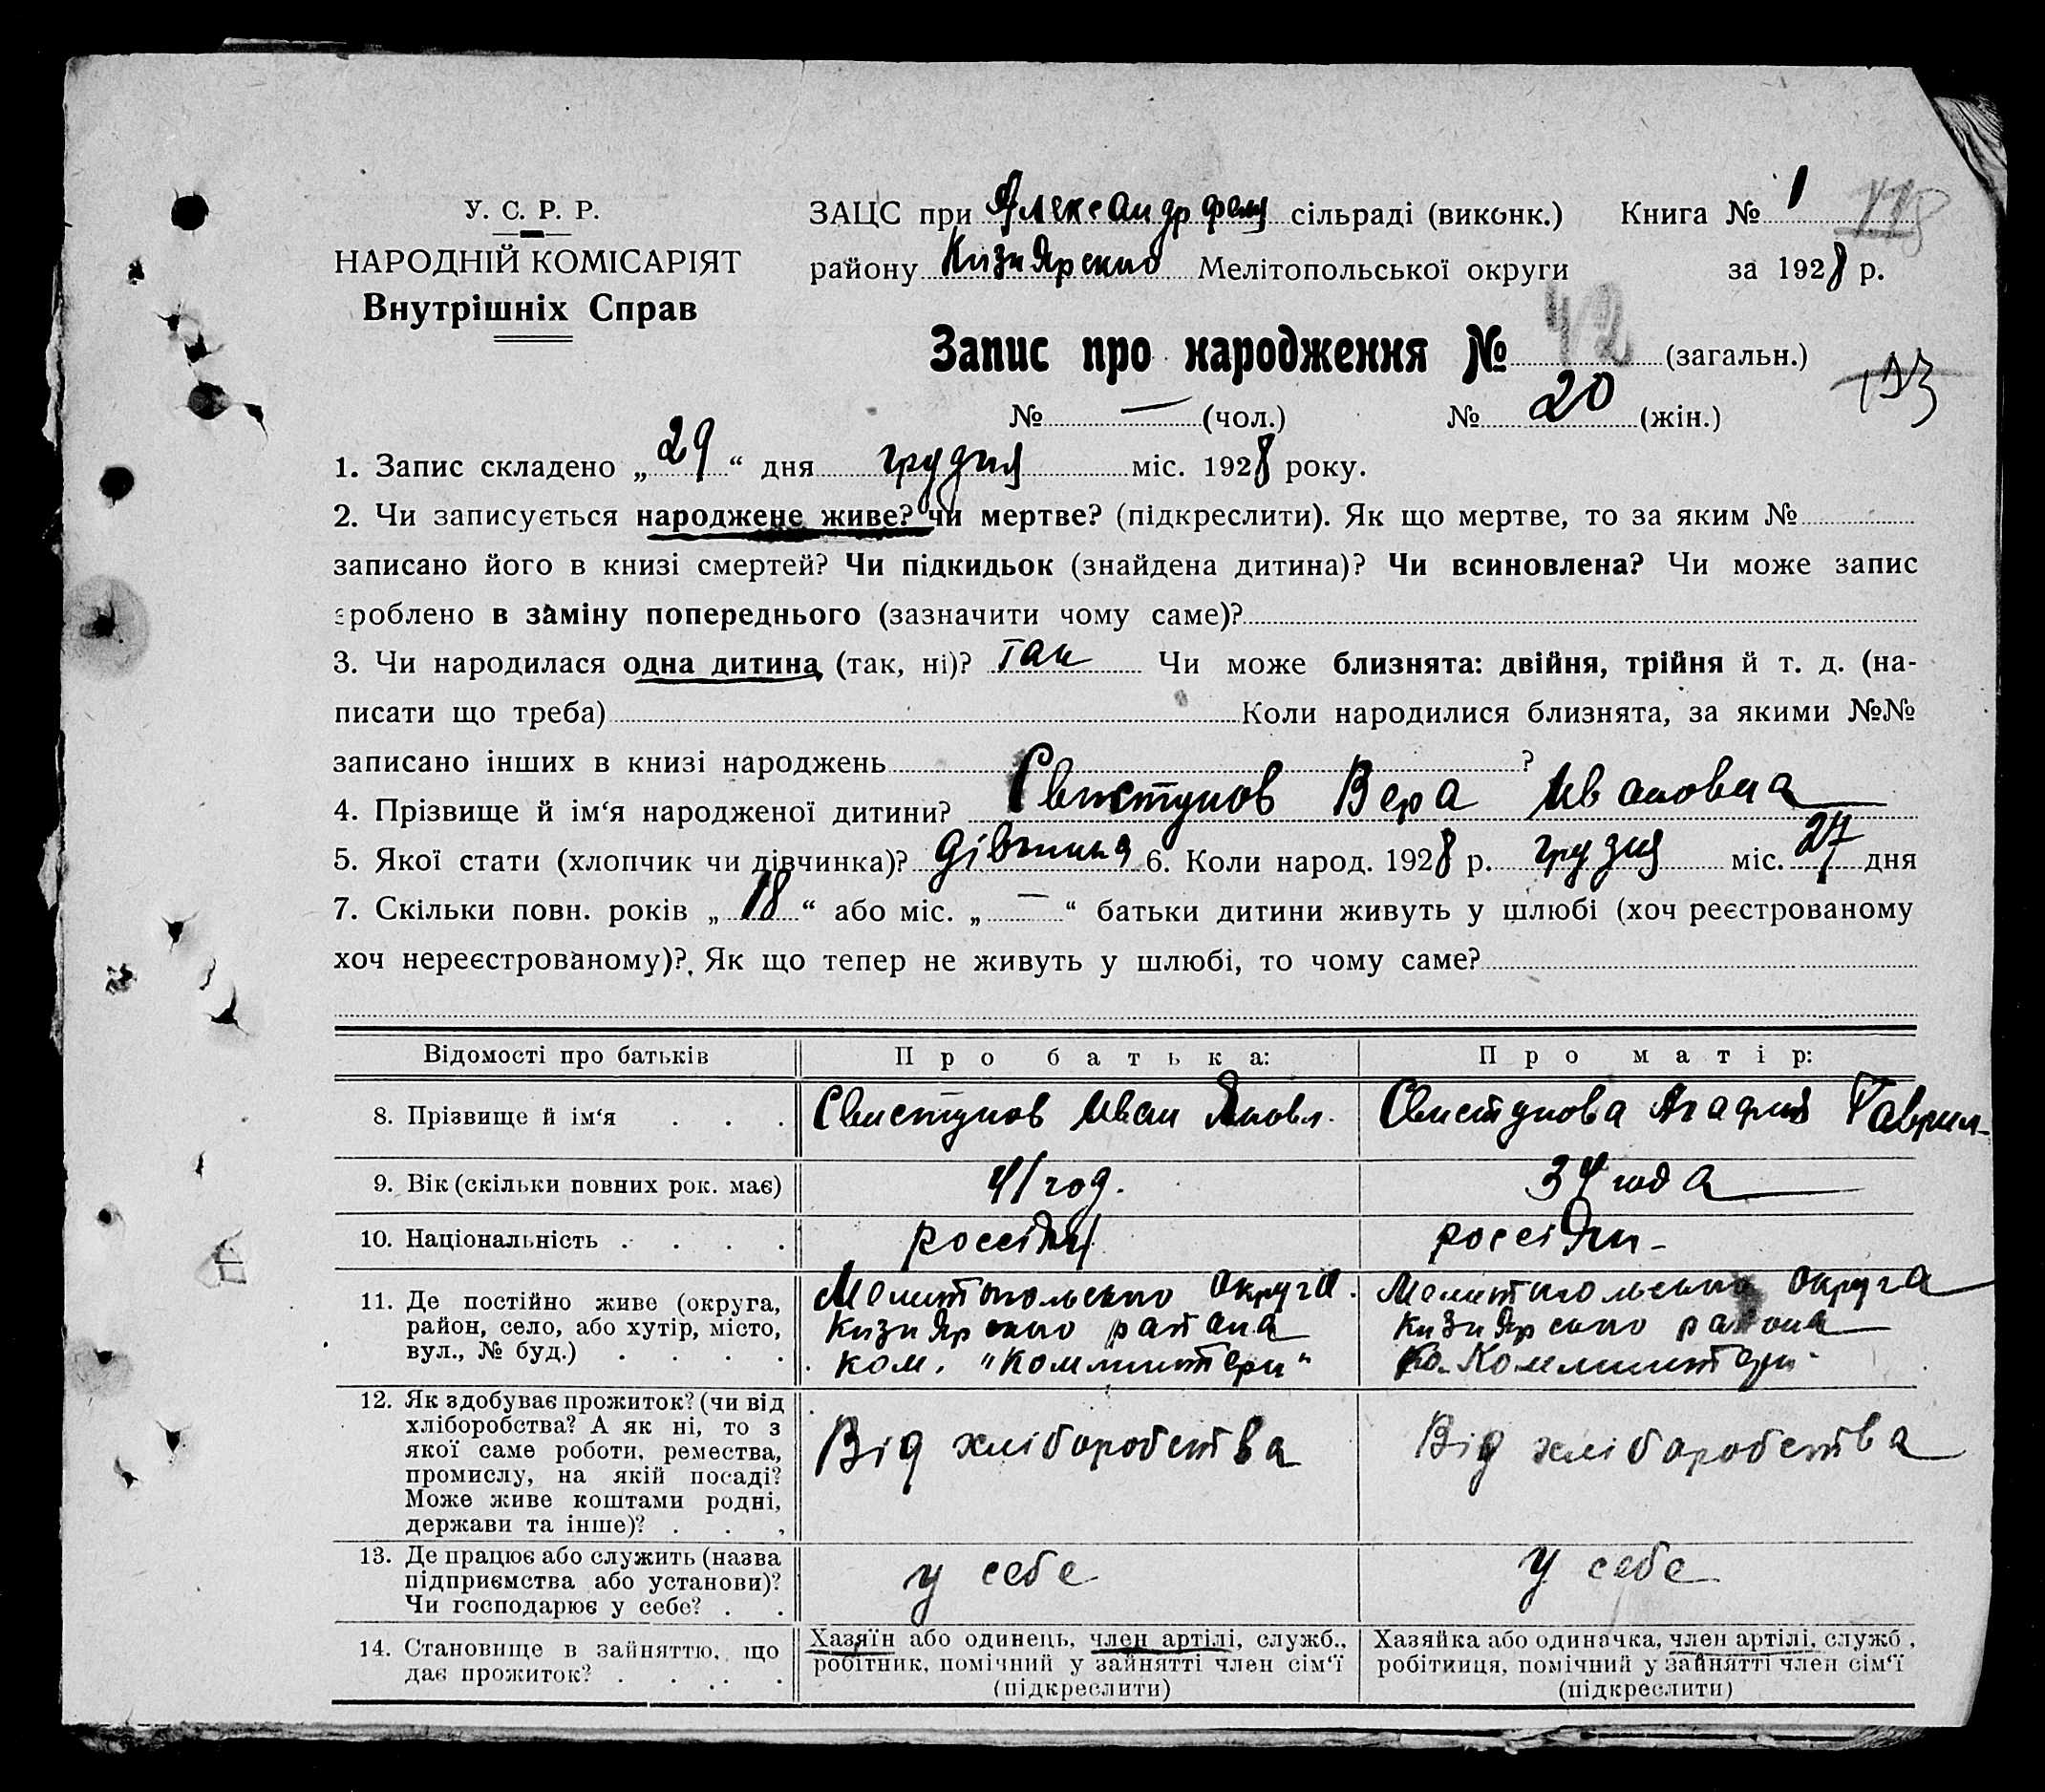 У. С. Р. Р.
НАРОДНІЙ КОМІСАРІЯТ
Внутрішніх Справ
ЗАЦС при Александрфелц сільраді (виконк.) Книга № 1 118
району Кизиярско Мелітопольської округи за 1928 р.
Запис про народження № 42 (загальн.)
№ — (чол.) № 20 (жін.)
1. Запис складено „ 29 “ дня грудня міс. 1928 року.
2. Чи записується народжене живе? чи мертве? (підкреслити). Як що мертве, то за яким №
записано його в книзі смертей? Чи підкидьок (знайдена дитина)? Чи всиновлена? Чи може запис
зроблено в заміну попереднього (зазначити чому саме)?
3. Чи народилася одна дитина (так, ні)? так Чи може близнята: двійня, трійня й т. д. (на-
писати що треба) Коли народилися близнята, за якими №№
записано інших в книзі народжень ?
4. Прізвище й ім‘я народженої дитини? Свистунов Вера Ивановна
5. Якої стати (хлопчик чи дівчинка)? дівчина 6. Коли народ. 1928 р. грудня міс. 27 дня
7. Скільки повн. років „ 18 “ або міс. „ — “ батьки дитини живуть у шлюбі (хоч реєстрованому
хоч нереєстрованому)? Як що тепер не живуть у шлюбі, то чому саме?
Відомості про батьків Про батька: Про матір:
8. Прізвище й ім‘я . . . Свистунов Иван Яковл. Свистунова Агафия Гаврил-
9. Вік (скільки повних рок. має) 41 год. 34 года
10. Національність . . . . россіян россіян-
11. Де постійно живе (округа, район, село, або хутір, місто, вул., № буд.) . . . .
Мелитопольско округа.
Кизиярско район
ком. "Коммінтерн"
Мелитопольско округа
Кизиярско района
Ко. Коммінтерн
12. Як здобуває прожиток? (чи від
хліборобства? А як ні, то з
якої саме роботи, ремества,
промислу, на якій посаді?
Може живе коштами родні,
держави та інше)? . . .
Від хліборобства Від хліборобства
13. Де працює або служить (назва
підприємства або установи)?
Чи господарює у себе? . .
у себе у себе
14. Становище в зайняттю, що
дає прожиток? . . . . .
Хазяїн або одинець, член артілі, служб.,
робітник, помічний у зайнятті член сім‘ї
(підкреслити)
Хазяйка або одиначка, член артілі, служб.,
робітниця, помічний у зайнятті член сім‘ї
(підкреслити)